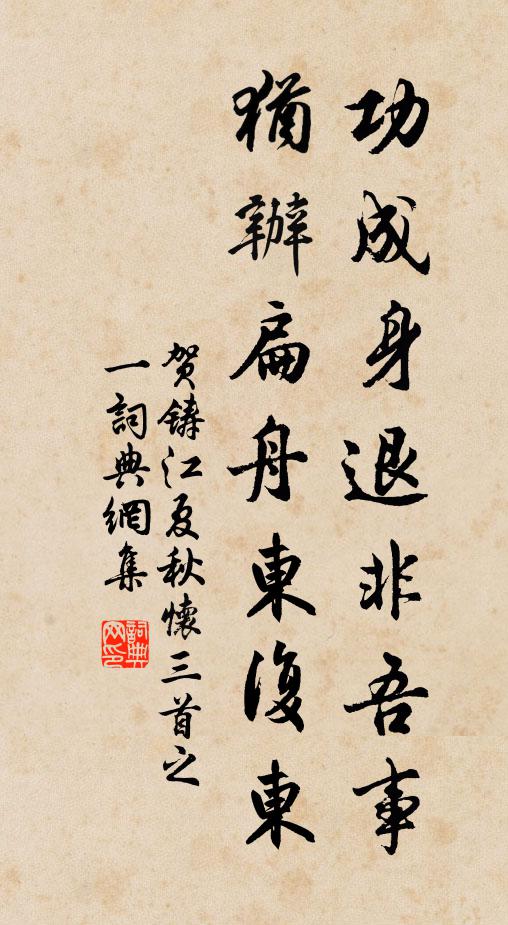 功成身退非吾事
猶辦扁舟東復東
贺鑄江夏秋懷三首之
一詞典網集
詞典
网印